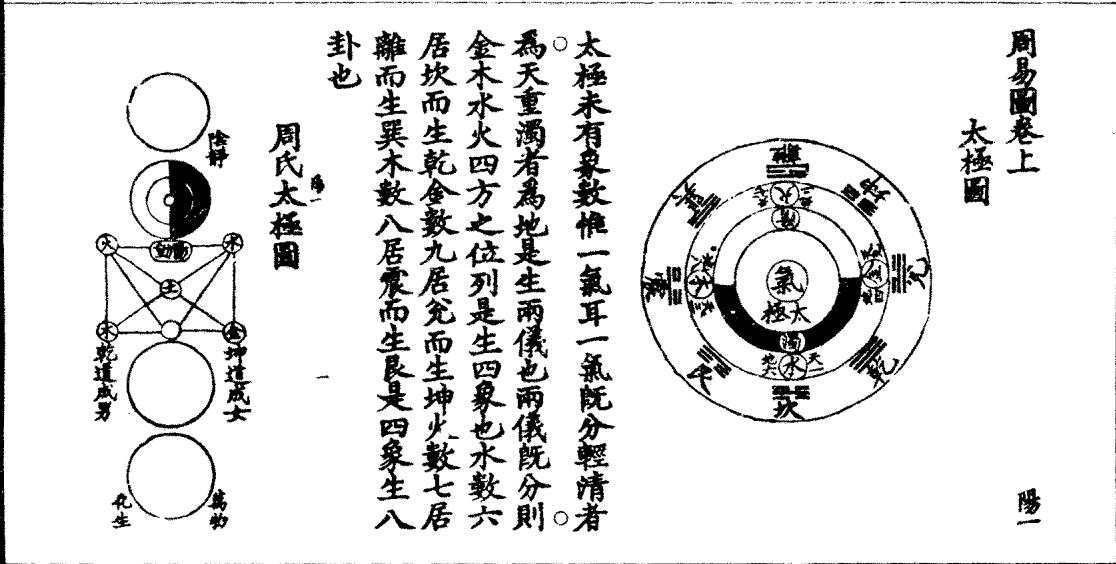 周易圖卷上
陽一
太極圖
離
坤
兌
乾
坎
艮
震
巽
火
清
氣
太極
濁
水
天一
地六
木
金
太極未有象數惟一氣耳一氣旣分輕清者
爲天重濁者爲地是生兩儀也兩儀旣分則
金木水火四方之位列是生四象也水數六
居坎而生乾金數九居兌而生坤火數七居
離而生巽木數八居震而生艮是四象生八
卦也
陽一
周氏太極圖
一
陰靜
陽動
火
水
土
木
金
坤道成女
乾道成男
萬物
化生